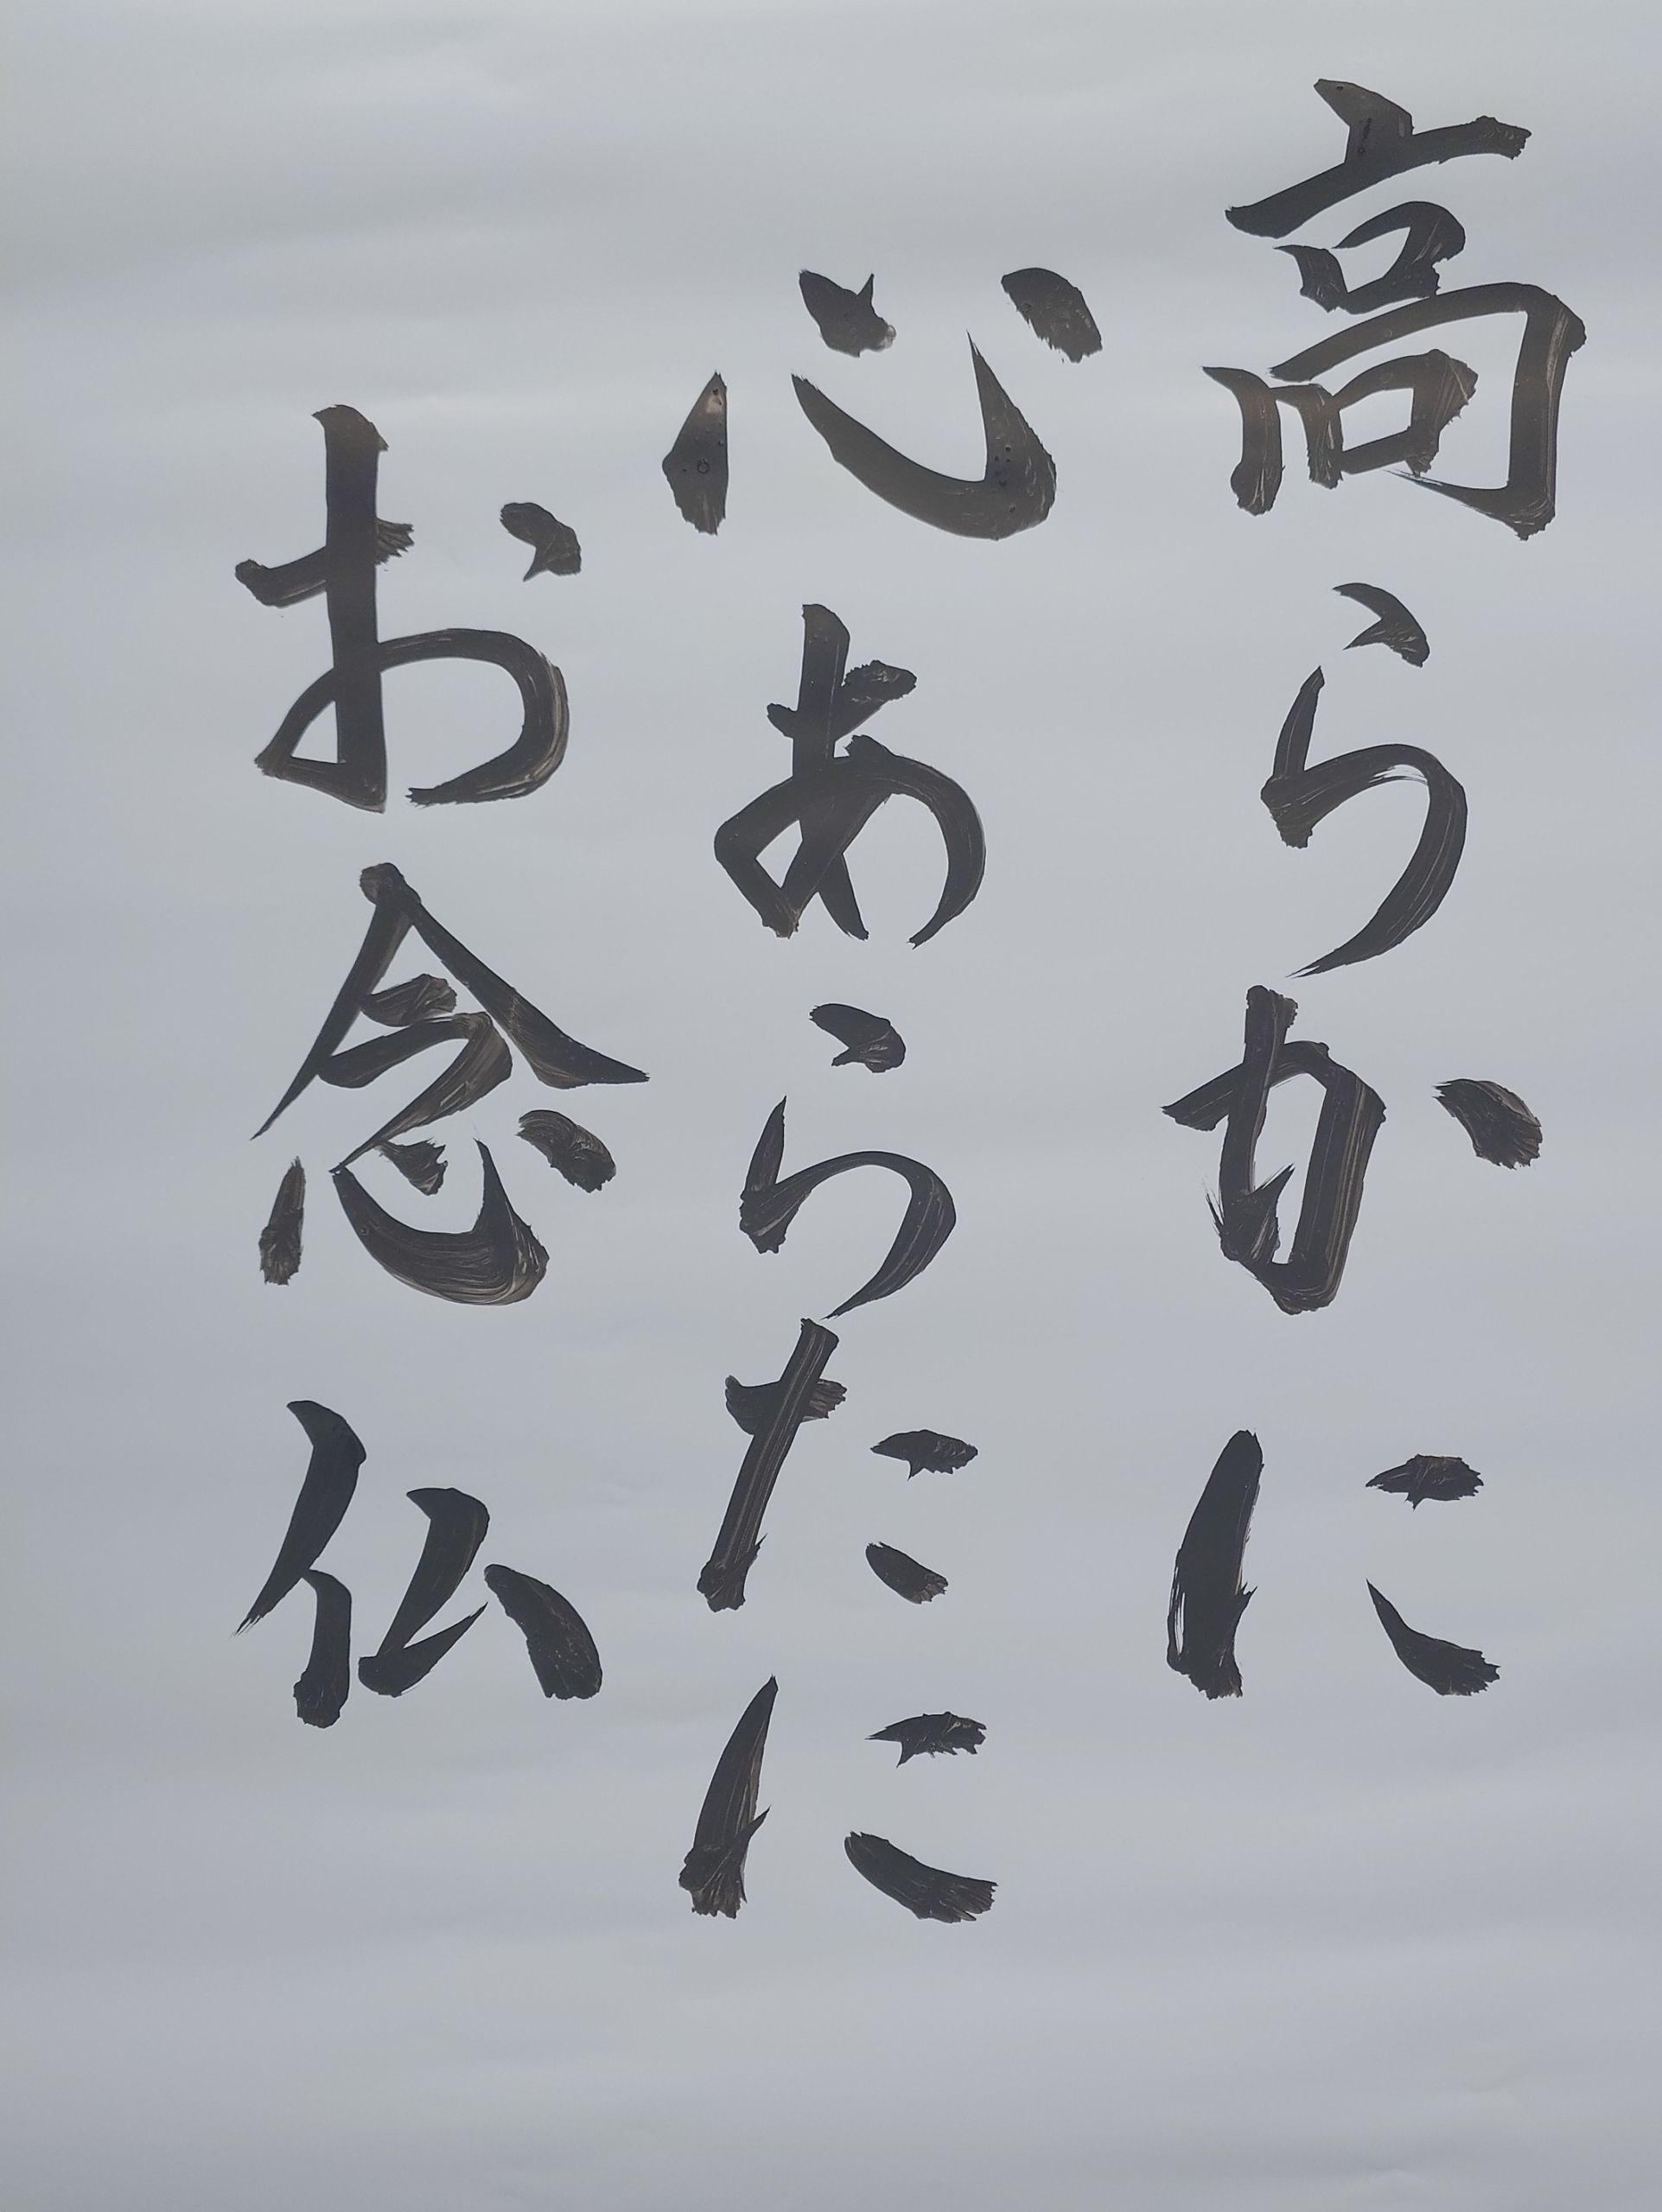 高らかに
心あらたに
お念仏